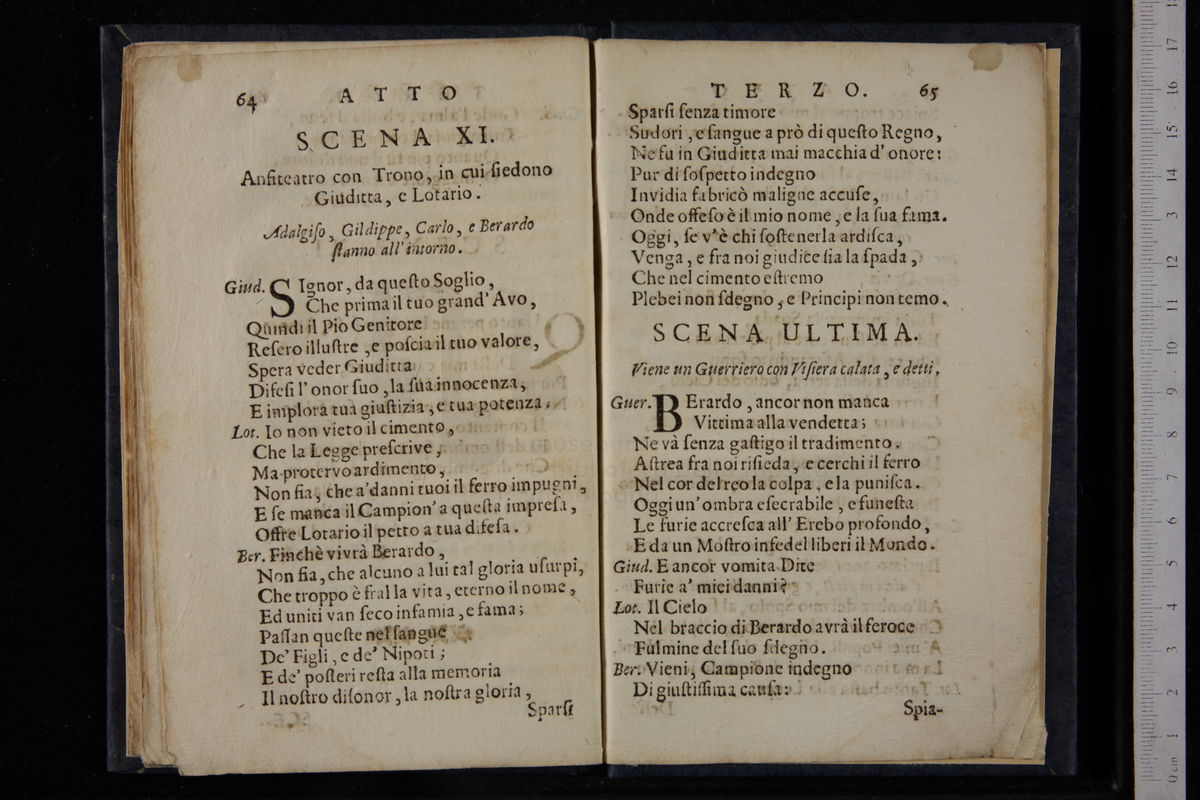 64 ATTO
SCENA XI.
Anfiteatro con Trono, in cui ſiedono
Giuditta, e Lotario.
Adalgiſo, Gildippe, Carlo, e Berardo
ſtanno all' intorno.
Giud. SIgnor, da queſto Soglio,
Che prima il tuo grand' Avo,
Quindi il Pio Genitore
Reſero illuſtre, e poſcia il tuo valore,
Spera veder Giuditta
Difeſi l' onor ſuo, la ſua innocenza,
E implora tua giuſtizia, e tua potenza.
Lot. Io non vieto il cimento,
Che la Legge preſcrive,
Ma protervo ardimento,
Non ſia, che a' danni tuoi il ferro impugni,
E ſe manca il Campion' a queſta impreſa,
Offre Lotario il petto a tua difeſa.
Ber. Finchè vivrà Berardo,
Non fia, che alcuno a lui tal gloria uſurpi,
Che troppo è fral la vita, eterno il nome,
Ed uniti van ſeco infamia, e fama;
Paſſan queſte nel ſangue
De' Figli, e de' Nipoti;
E de' poſteri reſta alla memoria
Il noſtro diſonor, la noſtra gloria,
Sparſi
TERZO. 65
Sparſi ſenza timore
Sudori, e ſangue a prò di queſto Regno,
Ne fu in Giuditta mai macchia d' onore:
Pur di ſoſpetto indegno
Invidia fabricò maligne accuſe,
Onde offeſo è il mio nome, e la ſua fama.
Oggi, ſe v'è chi ſoſtenerla ardiſca,
Venga, e fra noi giudice ſia la ſpada,
Che nel cimento eſtremo
Plebei non ſdegno, e Principi non temo.
SCENA ULTIMA.
Viene un Guerriero con Viſiera calata, e detti.
Guer. BErardo, ancor non manca
Vittima alla vendetta;
Ne và ſenza gaſtigo il tradimento.
Aſtrea fra noi riſieda, e cerchi il ferro
Nel cor del reo la colpa, e la puniſca.
Oggi un' ombra eſecrabile, e funeſta
Le furie accreſca all' Erebo profondo,
E da un Moſtro infedel liberi il Mondo.
Giud. E ancor vomita Dite
Furie a' miei danni?
Lot. Il Cielo
Nel braccio di Berardo avrà il feroce
Fulmine del ſuo ſdegno.
Ber. Vieni, Campione indegno
Di giuſtiſſima cauſa:
Spia-